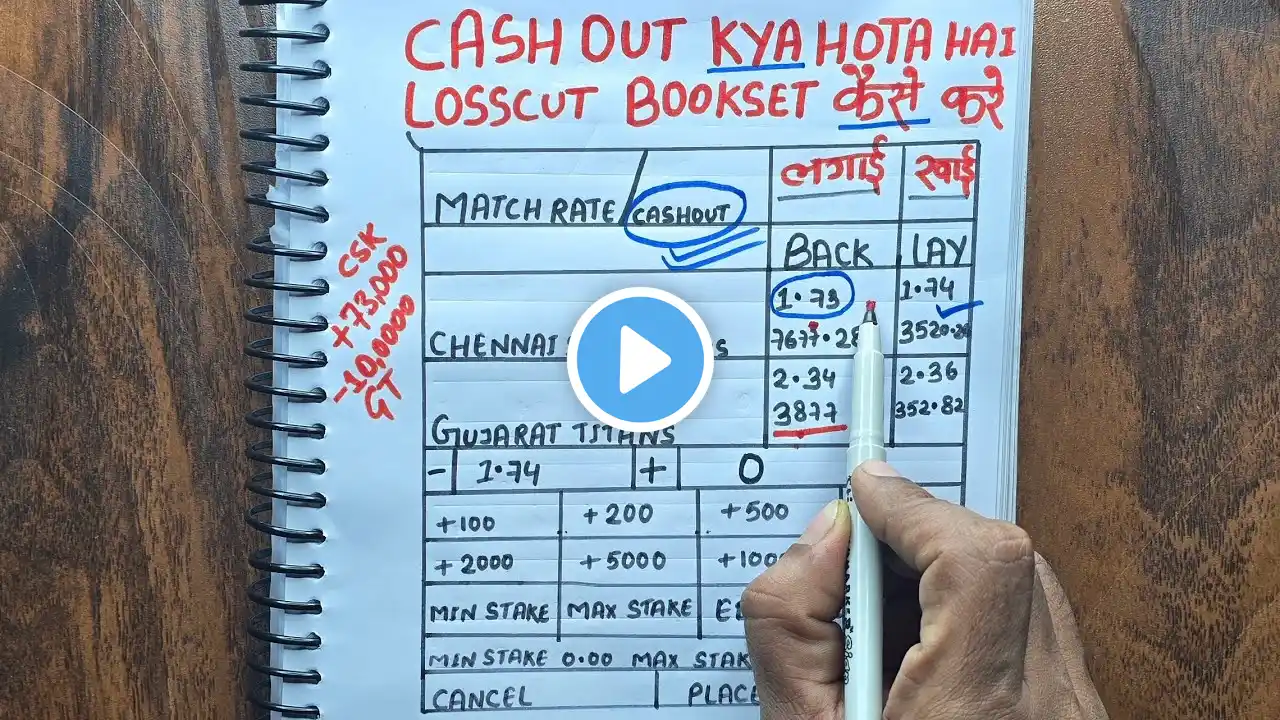 CASH OUT KYA HOTA HAI
LOSSCUT BOOKSET कैसे करे
लगाई खाई
MATCH RATE/CASHOUT
BACK LAY
CSK
+73,000
-10,0000
GT
1.73 1.74
CHENNAI 7677.28
2.34 2.36
3877 352.82
GUJARAT TITANS
- 1.74 + 0
+100 +200 +500
+2000 +5000
MIN STAKE MAX STAKE
MIN STAKE 0.00 MAX
CANCEL